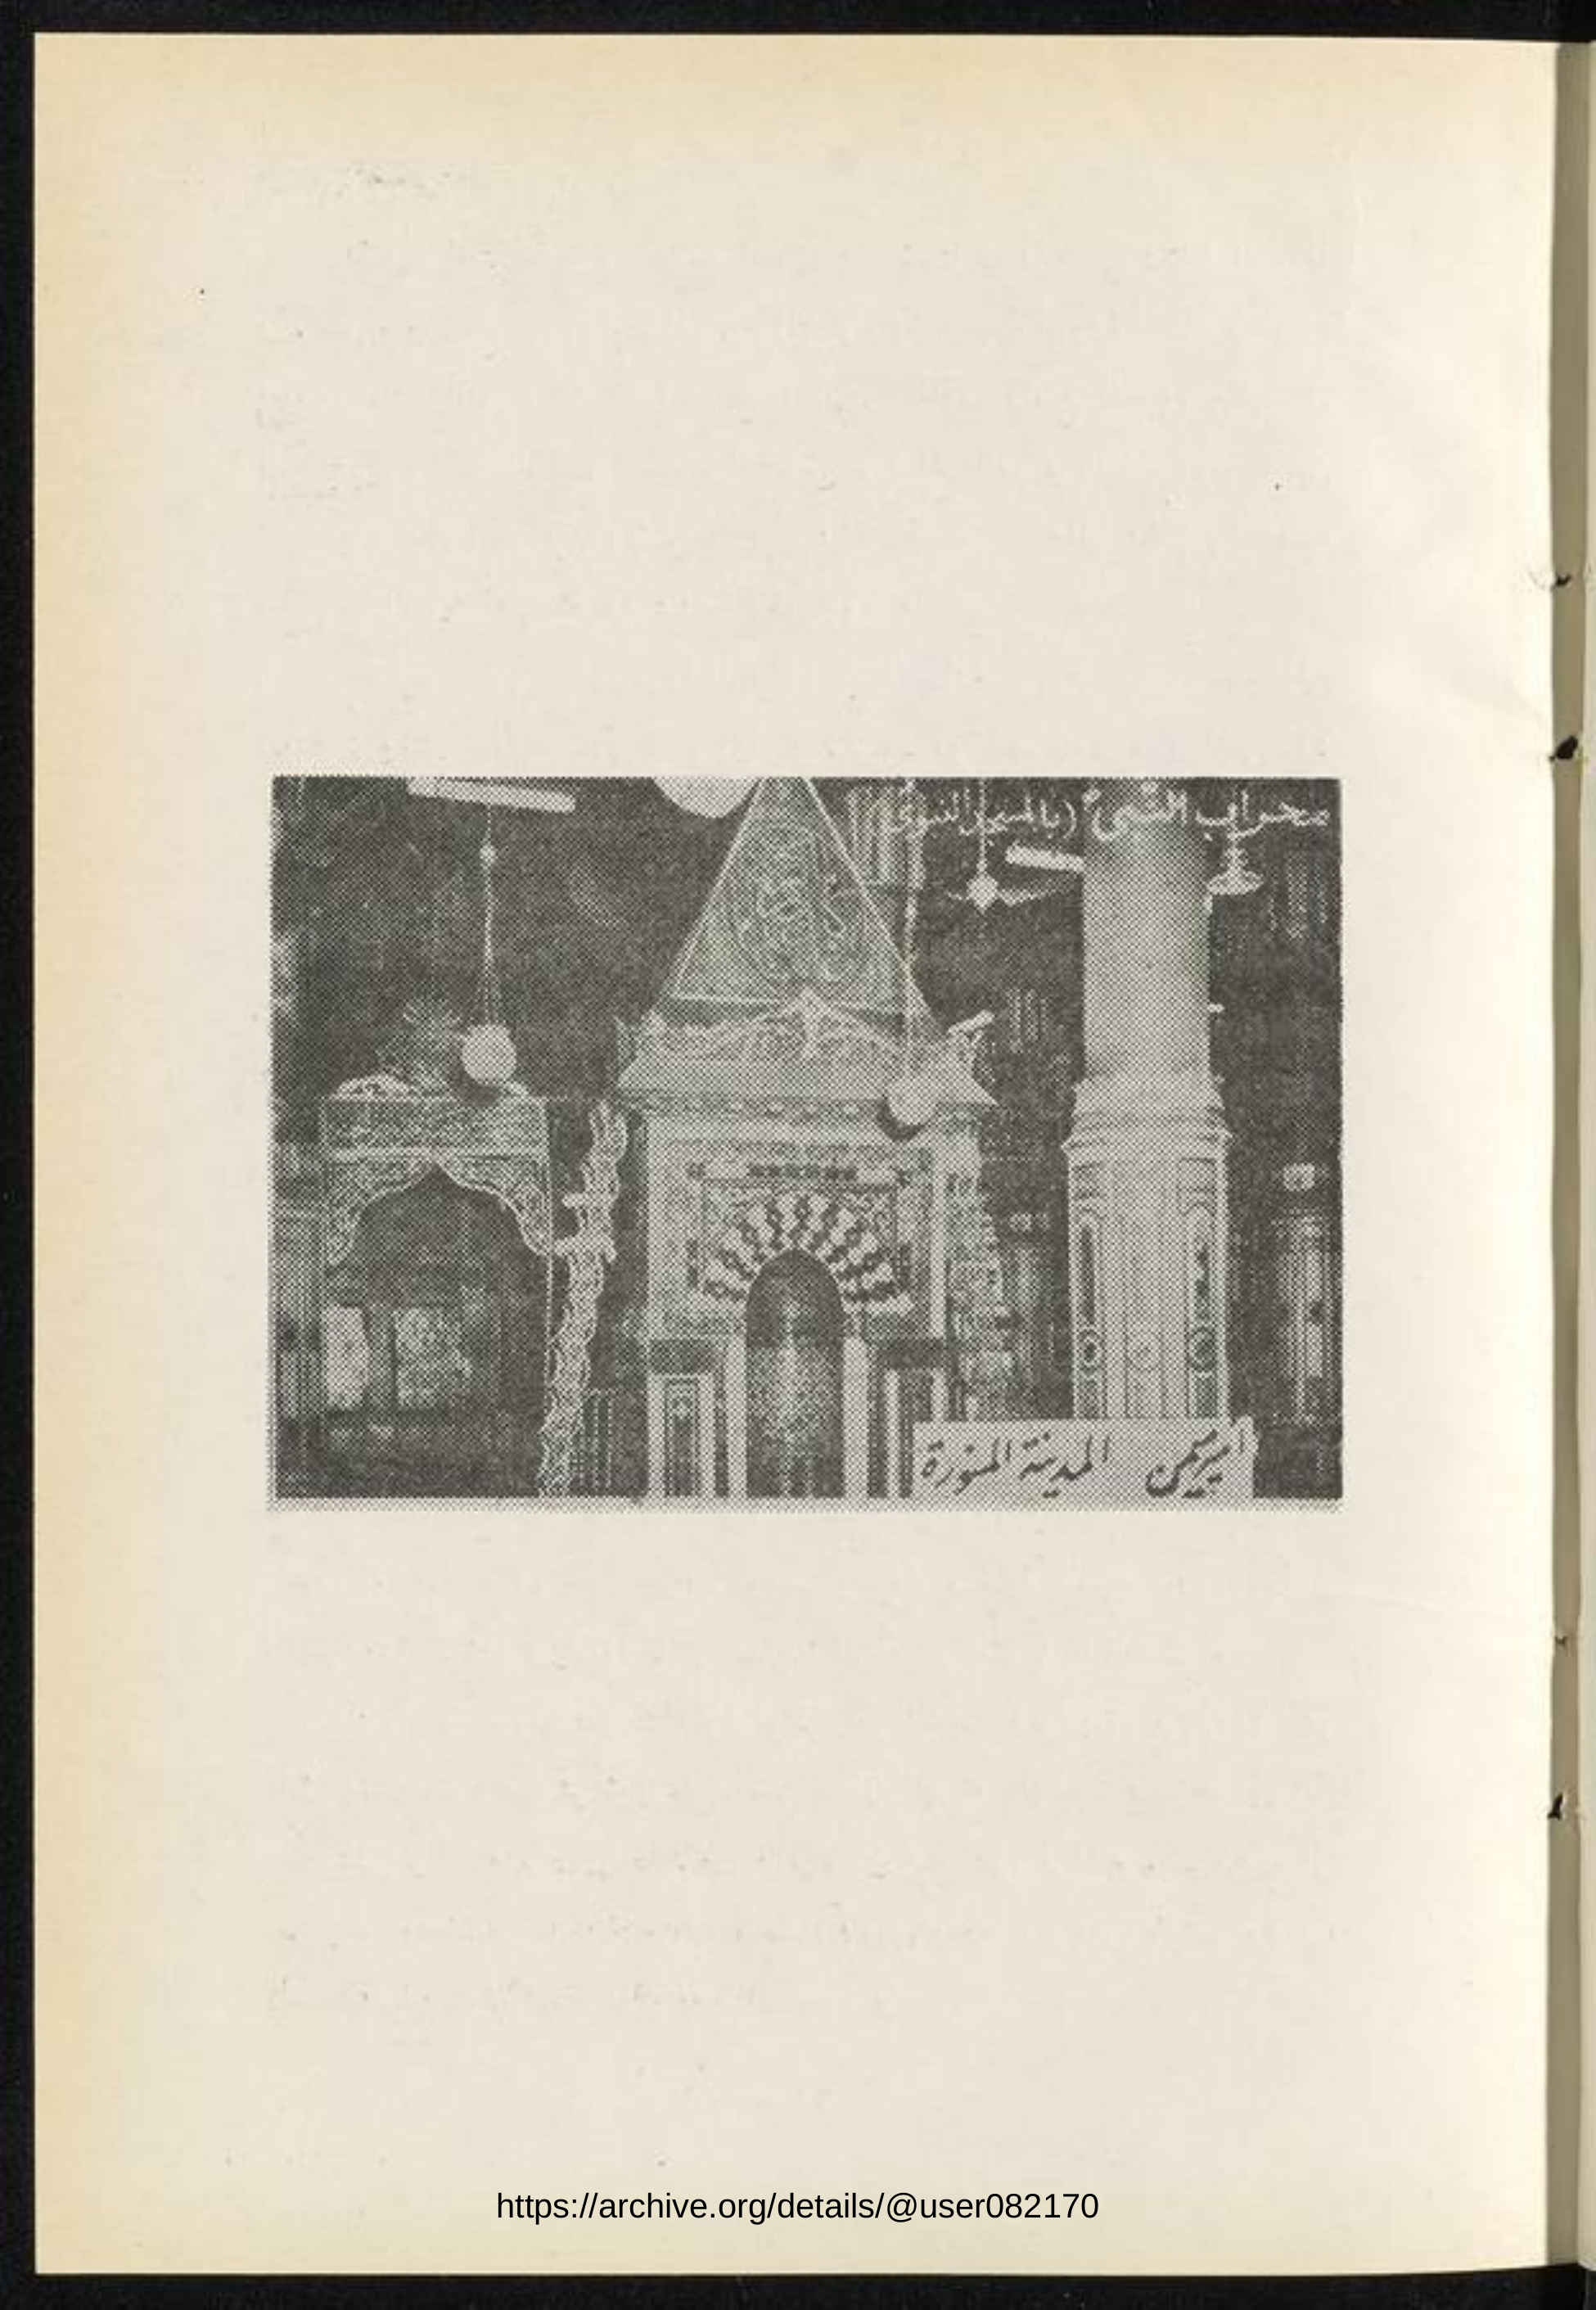 محراب النبي (بالمسجد النبوي)
المدينة المنورة
https://archive.org/details/@user082170